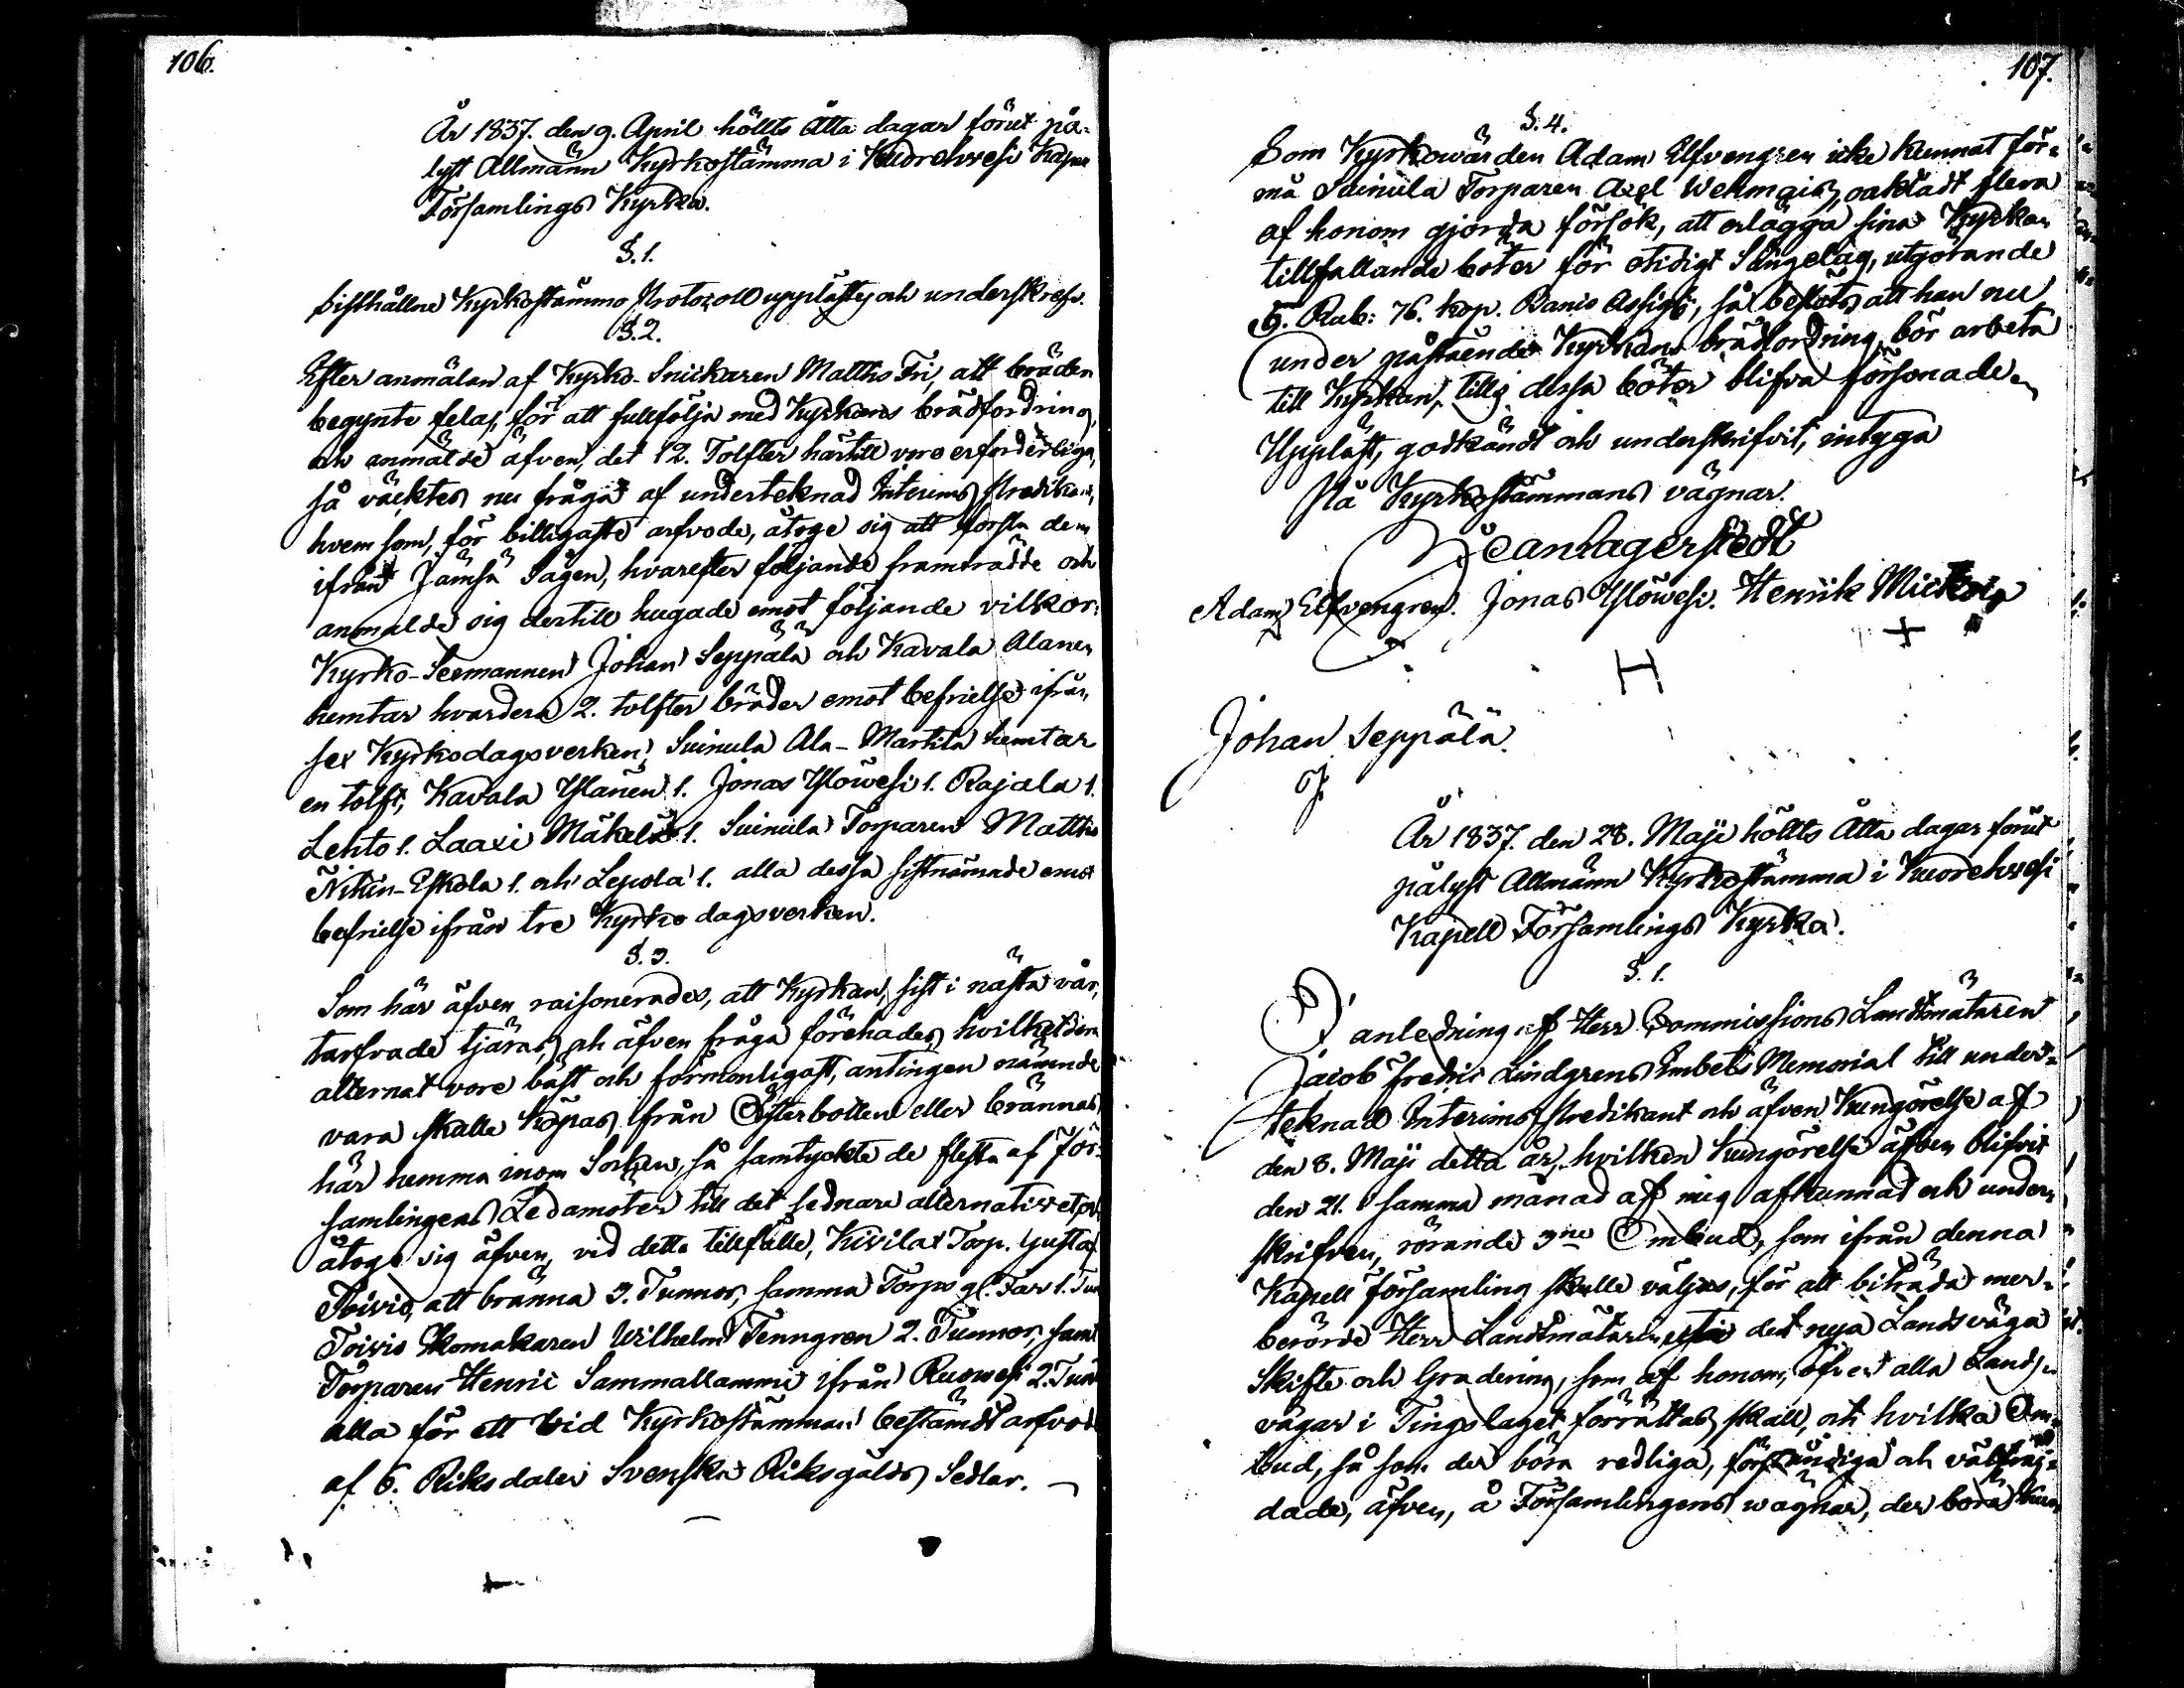 106.
År 1837. den 9. April höllts Åtta dagar förut på-
lyst Allmänn Kyrkostämma i Kuorehwesi Kapell
Församlings Kyrka.
§. 1.
Sisthållne Kyrkostämmo Protocoll upplästes och underskrefs.
§. 2.
Efter anmälan af Kyrko-Snickaren Matths Fri, att bräden
begynte felas, för att fullfölja med Kyrkans brädfordring,
och anmälde äfven, det 12. Tolfter härtill voro erforderliga,
så väcktes nu fråga af underteknad Interims Predikant,
hvem som, för billigaste arfvode, åtoge sig att forsla dem
ifrån Jämsä Sågen, hvarefter följande framträdde och
anmälde sig dertill hugade emot följande vilkor:
Kyrko-Seemannen Johan Seppälä och Kavala Alanen
hemtar hvardera 2. tolfter bräder emot befrielse ifrån
sex Kyrkodagsverken, Suinula Ala-Marttila hemtar
en tolft, Kavala Ylänen 1. Jonas Ylöwesi 1. Rajala 1.
Lehto 1. Laaxi Mäkelä 1. Suinula Torparen Matths
Eskola 1. och Lepola 1. alla dessa sistnämnde emot
befrielse ifrån tre Kyrko dagsverken.
§. 3.
Som här äfven raisonerades, att Kyrkan, sist i nästa vår,
tarfvade tjäras, och äfven fråga förehades, hvilketdera
alternat vore bäst och förmonligast, antingen nämnde
vara skulle köpas från Österbotten eller brännas
här hemma inom Socken, så samtyckte de flesta af För-
samlingens Ledamöter till det sednare alternativet och
åtogo sig äfven, vid detta tillfälle, Kivilax Torp. Gustaf
Toivio, att bränna 3. Tunnor, samma Torps gl. Far 1. Tun
Toivio Skomakaren Wilhelm Tenngren 2. Tunnor, samt
Torparen Henric Sammallammi ifrån Ruowesi 2. Tun
alla för ett vid Kyrkostämman bestämdt arfvode
af 6. Riksdaler Svenska Riksgälds Sedlar.
107.
§. 4.
Som Kyrkowärden Adam Elfvengren icke kunnat för-
må Suinula Torparen Axel Wehmais, oaktadt flera
af honom gjorda försök, att erlägga sina Kyrkan
tillfallande böter för otidigt Sängelag, utgörande
5. Rub: 76. kop. Banco Assign, så beslöts att han nu
under påstående Kyrkans brädfordring, bör arbeta
till Kyrkan, tills dessa böter blifva försonade.
Uppläst, godkändt och underskrifvit, intyga
På Kyrkostämmans vägnar.
Adam Elfvengren. Jonas Ylöwesi. Henrik
H
Johan Seppälä.
År 1837. den 28. Maji höllts Åtta dagar förut
pålyst Allmänn Kyrkostämma i Kuorehwesi
Kapell Församlings Kyrka.
§. 1.
I anledning af Herr Commissions Landtmätaren
Jacob Fredric Lindgrens Embets Memorial till under-
teknad Interims Predikant och äfven Kungörelse af
den 8. Maji detta år, hvilken Kungörelse äfven blifvit
den 21. samma månad af mig afkunnad och under-
skrifven, rörande 3ne Ombud, som ifrån denna
Kapell församling skulle väljas, för att biträda mer-
berörde Herr Landtmätaren uti det nya Landsväga
Skifte och Gradering, som af honom, öfver alla Lands-
vägar i Tingslaget förrättas skall, och hvilka Om-
bud, så som der böra redliga, förståndiga och välfräj-
dade, äfven, å Församlingens wägnar, der böra